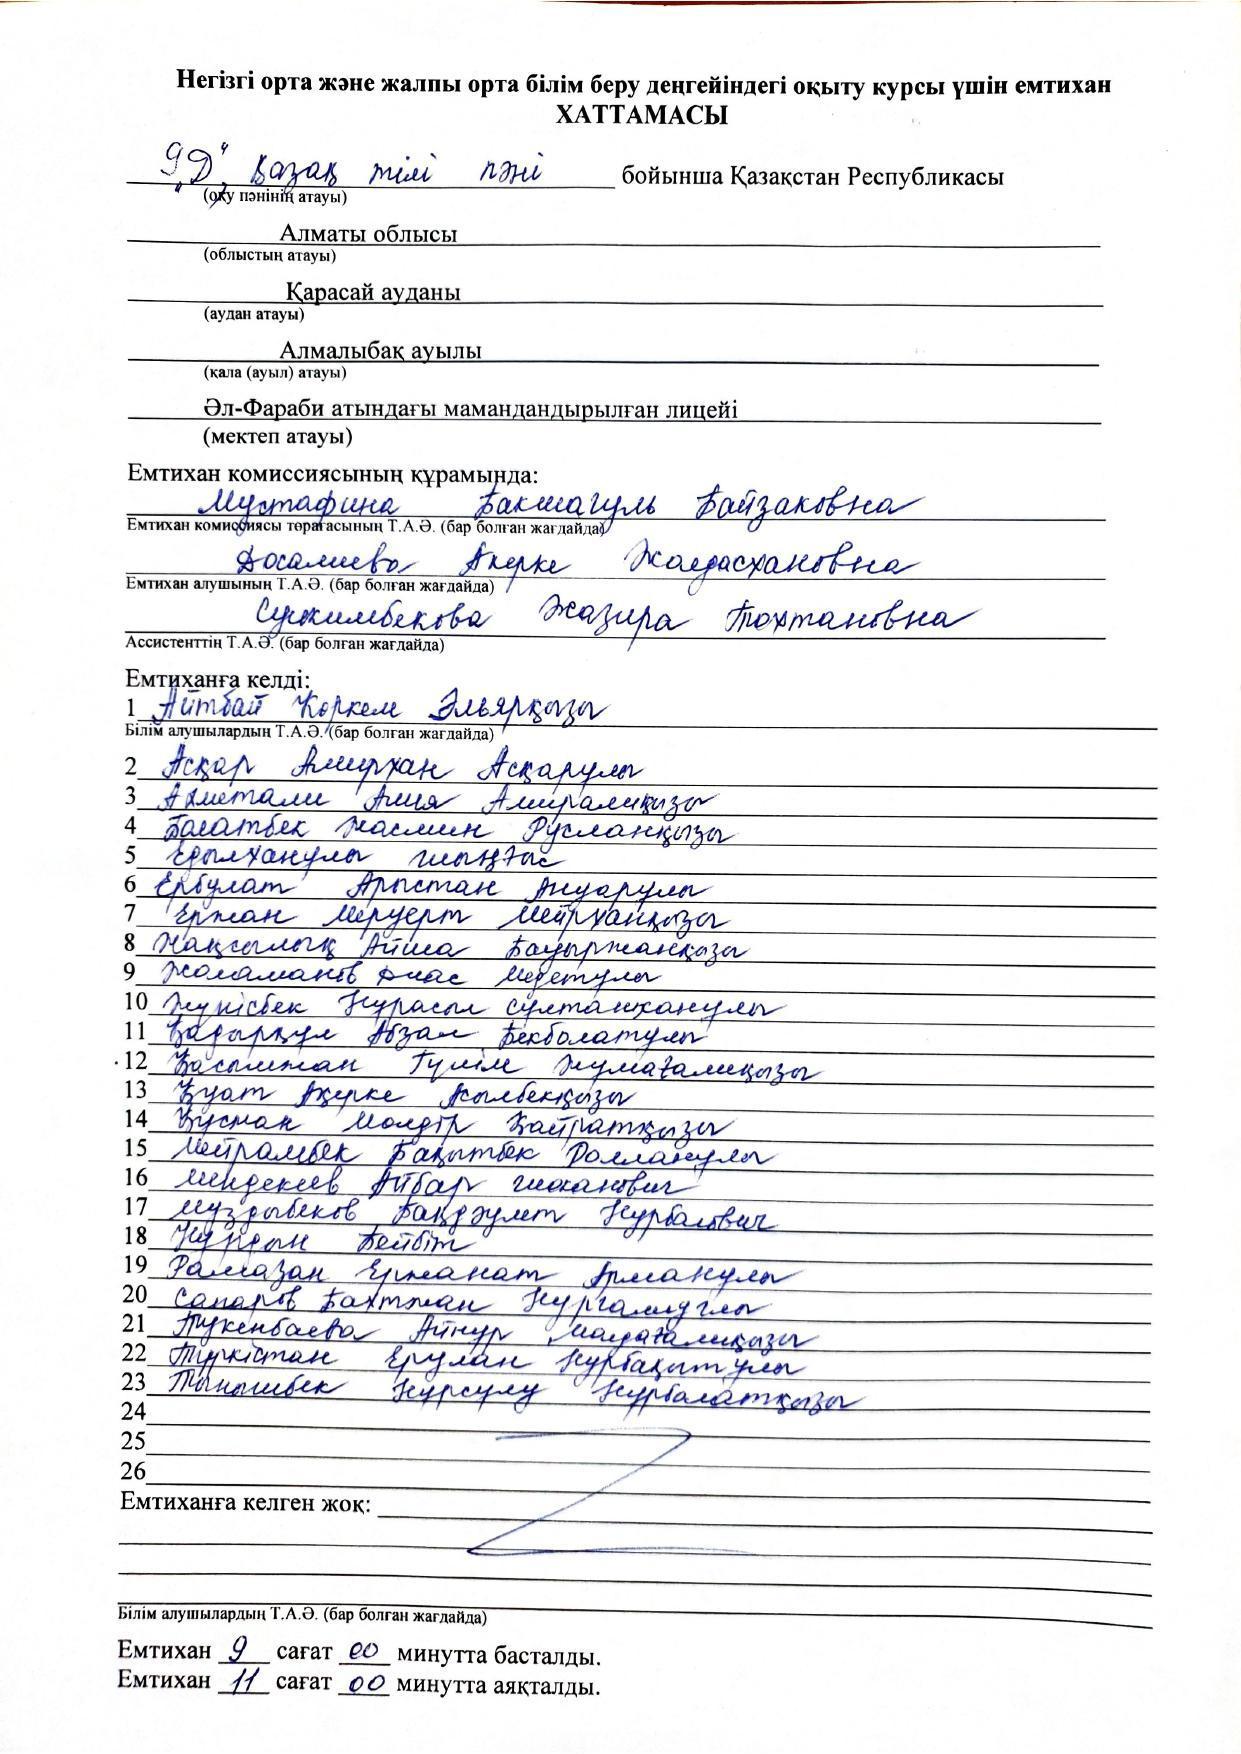 Негізгі орта және жалпы орта білім беру деңгейіндегі оқыту курсы үшін емтихан
ХАТТАМАСЫ
9 "Д" Қазақ тілі пәні бойынша Қазақстан Республикасы
(оқу пәнінің атауы)
Алматы облысы
(облыстың атауы)
Қарасай ауданы
(аудан атауы)
Алмалыбақ ауылы
(қала (ауыл) атауы)
Әл-Фараби атындағы мамандандырылған лицейі
(мектеп атауы)
Емтихан комиссиясының құрамында:
Мустафина Бакшагуль Байзаковна
Емтихан комиссиясы төрағасының Т.А.Ә. (бар болған жағдайда)
Досалиева Акерке Жолдасхановна
Емтихан алушының Т.А.Ә. (бар болған жағдайда)
Сужимбекова Жазира Тохтановна
Ассистенттің Т.А.Ә. (бар болған жағдайда)
Емтиханға келді:
1 Айтбай Көркем Эльярқызы
Білім алушылардың Т.А.Ә. (бар болған жағдайда)
2 Асқар Амирхан Асқарулы
3 Ахметали Алия Амиралиқызы
4 Болатбек Жасмин Русланқызы
5 Едылханулы Шыңғыс
6 Ербулат Арыстан Ануарулы
7 Ержан Меруерт Мейрханқызы
8 Жақсылық Айша Бауыржанқызы
9 Жоламанов Диас Медетулы
10 Жүнісбек Нурасыл Султанханулы
11 Қадырқұл Абзал Бекболатулы
12 Қасымжан Гүлім Жумағалиқызы
13 Қуат Ақерке Асылбекқызы
14 Құсман Молдір Қайратқызы
15 Мейрамбек Бақытбек Ролланулы
16 Мендекеев Айбар Шоканович
17 Муздыбеков Бақдәулет Нурбалович
18 Бейбіт
19 Рамазан Ержанат Арманулы
20 Сапаров Бахтжан Нургалиуглы
21 Тукенбаева Айнур Молдағалиқызы
22 Түркістан Ерулан Нурбақытулы
23 Тынышбек Нурсулу Нурболатқызы
24
25
26
Емтиханға келген жоқ:
Білім алушылардың Т.А.Ә. (бар болған жағдайда)
Емтихан 9 сағат 00 минутта басталды.
Емтихан 11 сағат 00 минутта аяқталды.